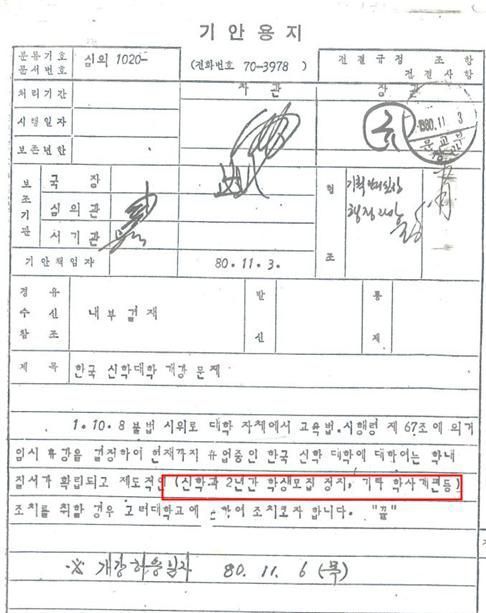 기안용지
분류기호
문서번호
심의 1020-
(전화번호 70-3978)
전결규정 조 항
전결사항
처리기간
차관
장관
시행일자
1980.11. 3
보존년한
보조기관
국장
심의관
서기관
협조
기획관리실장
기안책임자
80.11.3.
경유
수신
참조
내부결재
발신
통제
제목 한국 신학대학 개강 문제
1.10.8 불법 시위로 대학 자체에서 교육법.시행령 제 67조에 의거
임시 휴강을 결정하여 현재까지 휴업중인 한국 신학 대학에 대하여는 학내
질서가 확립되고 제도적인 (신학과 2년간 학생모집 정지, 기타 학사개편등)
조치를 취할 경우 그러대학교에 하여 조치코자 합니다. "끝"
※ 개강허용일자 80. 11. 6 (목)